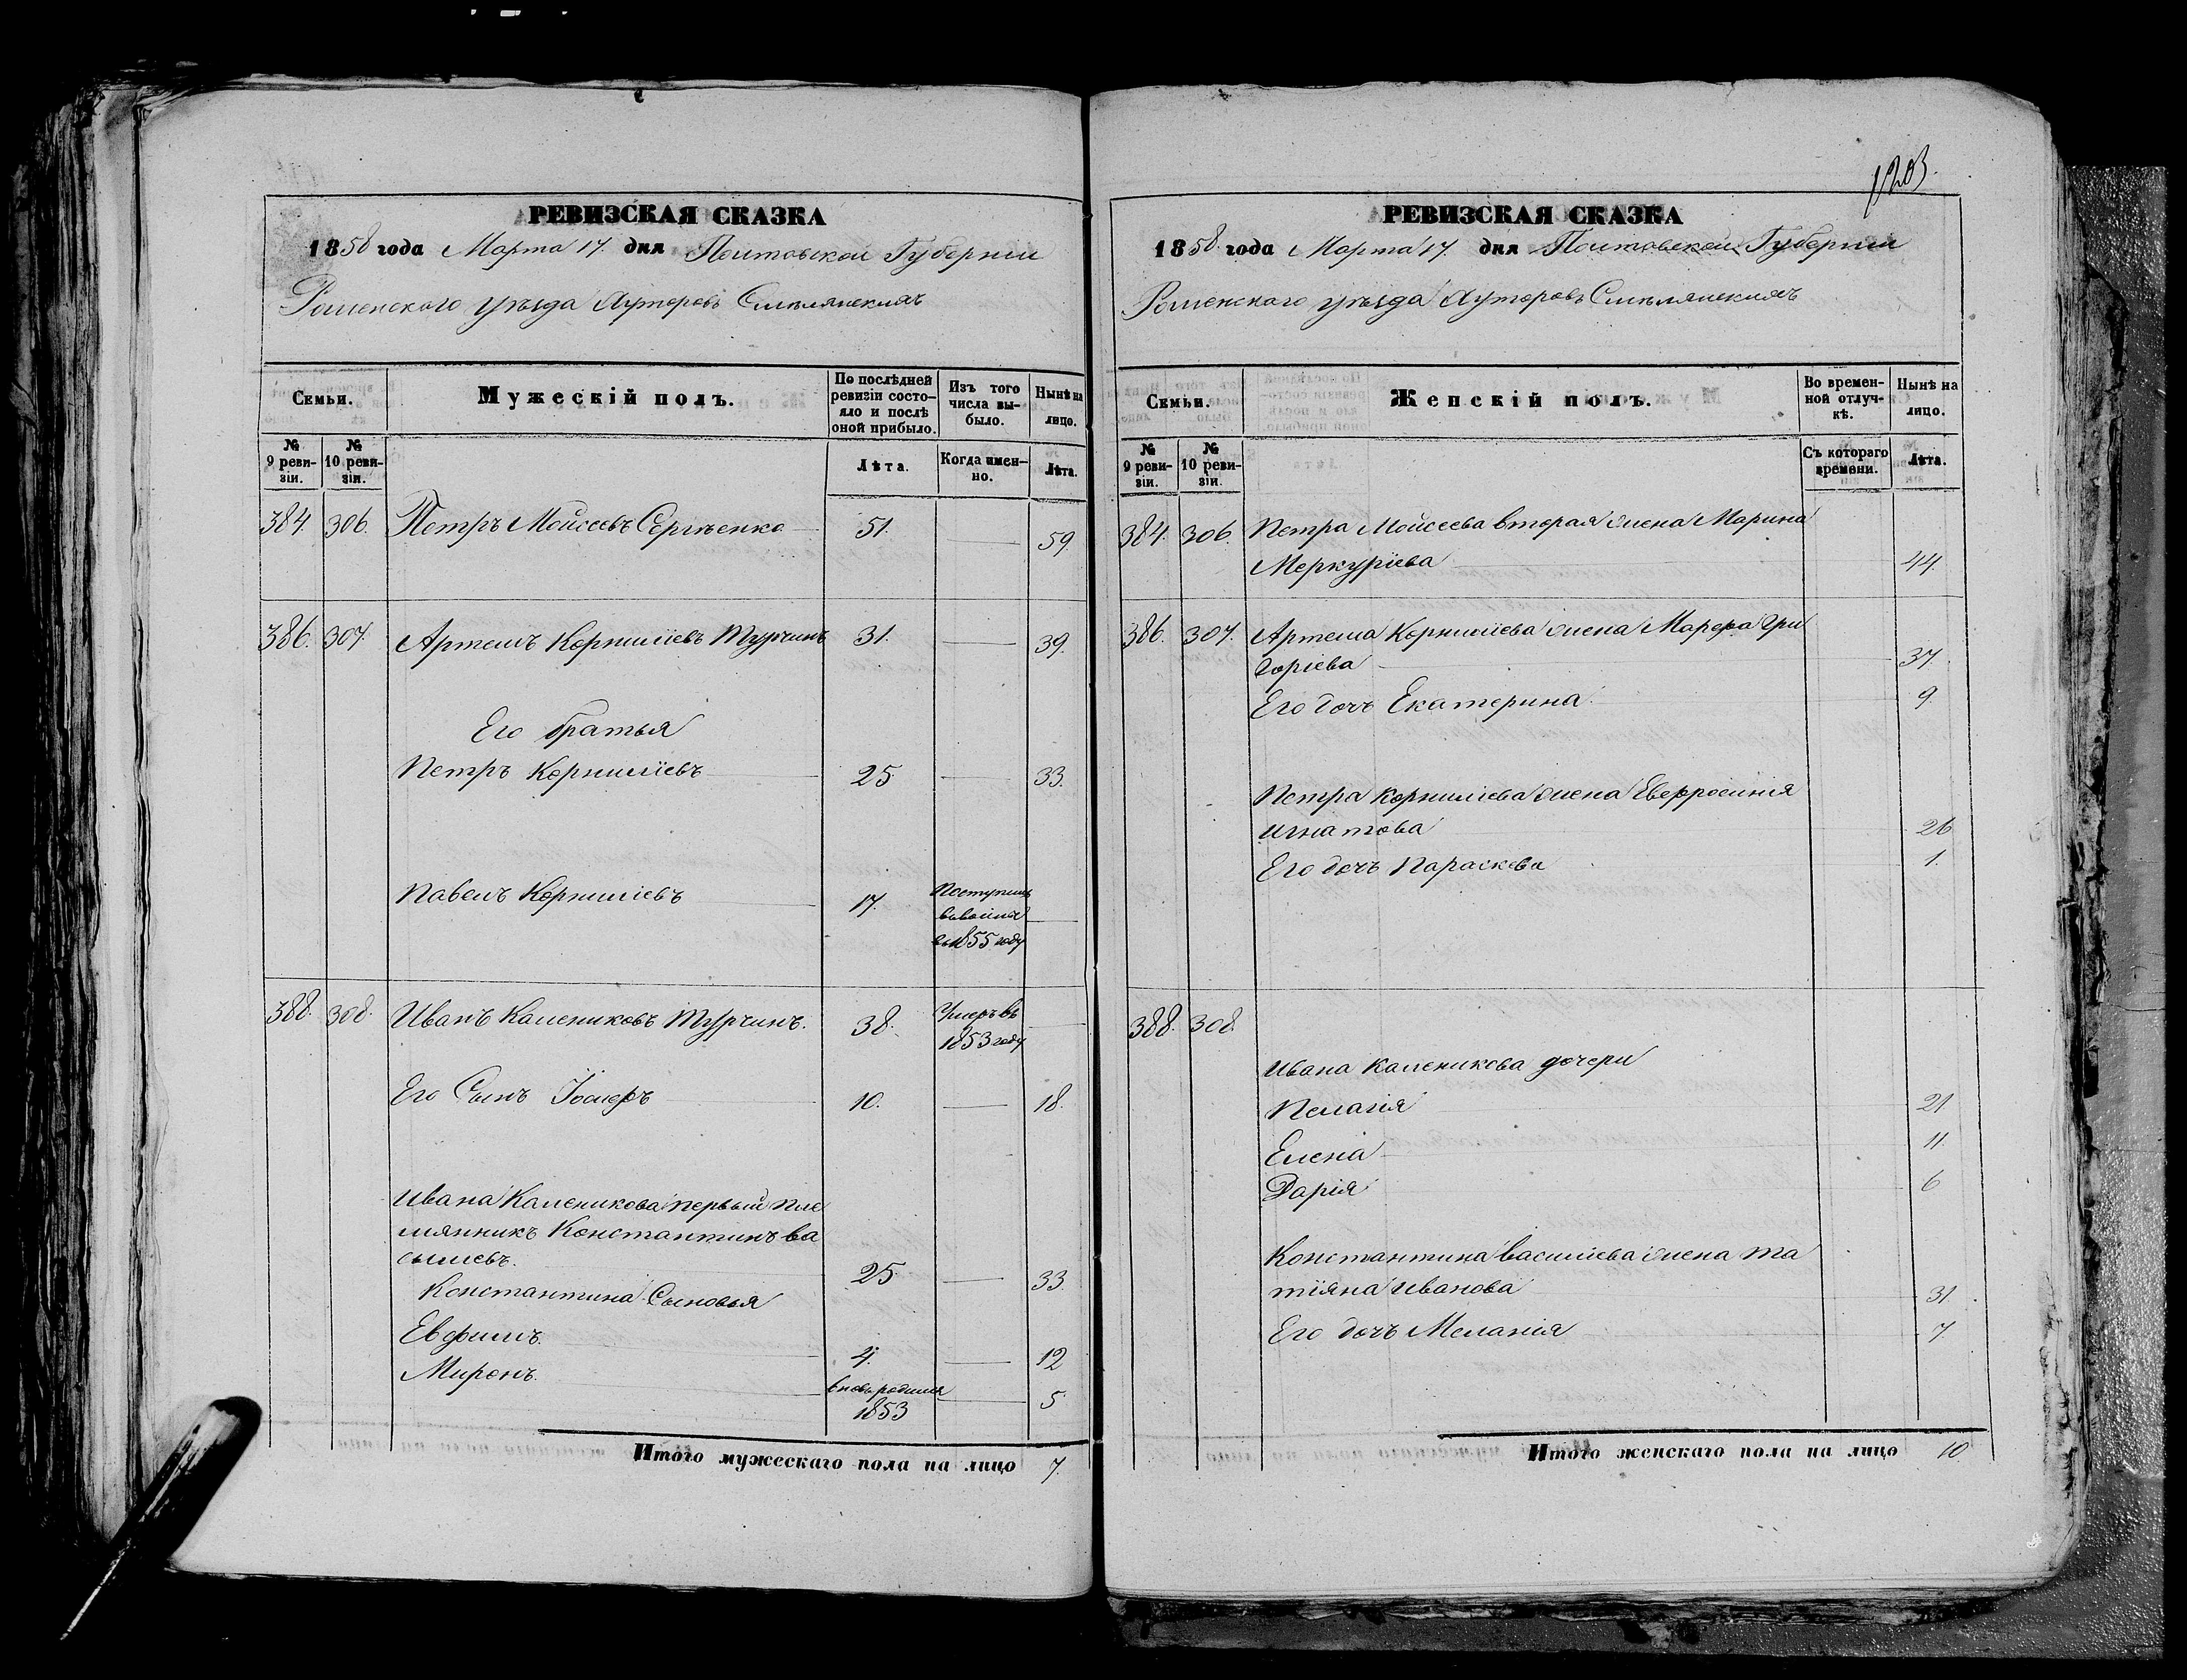 РЕВИЗСКАЯ СКАЗКА
1858 года Марта 17. дня Полтовской Губерніи
Роменскаго уѣзда Хуторовъ Смѣлянскихъ
Семьи.
Мужескій полъ.
По послѣдней ревизіи состояло и послѣ оной прибыло.
Изъ того числа выбыло.
Нынѣ на лицо.
№ 9 ревизіи.
№ 10 ревизіи.
Лѣта.
Когда именно.
Лѣта.
384. 306. Петръ Мойсеевъ Сергѣенко 51. 59.
386. 307. Артемъ Корниліевъ Турчинъ 31. 39.
Его братья
Петръ Корниліевъ 25 33.
Павелъ Корниліевъ 17. Поступилъ
въ 1855 году
388. 308. Иванъ Калениковъ Турчинъ. 38. Умеръ въ
1853 году
Его Сынъ Іосифъ 10. 18.
Ивана Каленикова первый пле
мянникъ Константинъ Ва
сильевъ. 25. 33.
Константина Сыновья
Евфимъ. 4. 12
Миронъ. вновь родился 5
1853
Итого мужескаго пола на лицо 7.
1203.
РЕВИЗСКАЯ СКАЗКА
1858. года Марта 17. дня Полтовской Губерніи
Роменскаго уѣзда Хуторовъ Смѣлянскихъ
Семьи.
Женскій полъ.
Во временной отлучкѣ.
Нынѣ на лицо.
№ 9 ревизіи.
№ 10 ревизіи.
Съ котораго времени.
Лѣта.
384. 306. Петра Мойсеева вторая жена Марина
Меркуріева 44.
386. 307. Артема Корниліева жена Марфа Гри
горіева 37.
Его дочь Екатерина. 9.
Петра Корниліева жена Евфросинія
Игнатова 26
Его дочь Параскева 1.
388. 308.
Ивана Каленикова дочери
Пелагія 21
Елена 11.
Дарія 6
Константина Василіева жена Та
тіяна Иванова 31.
Его дочь Меланія 7.
Итого женскаго пола на лицо 10